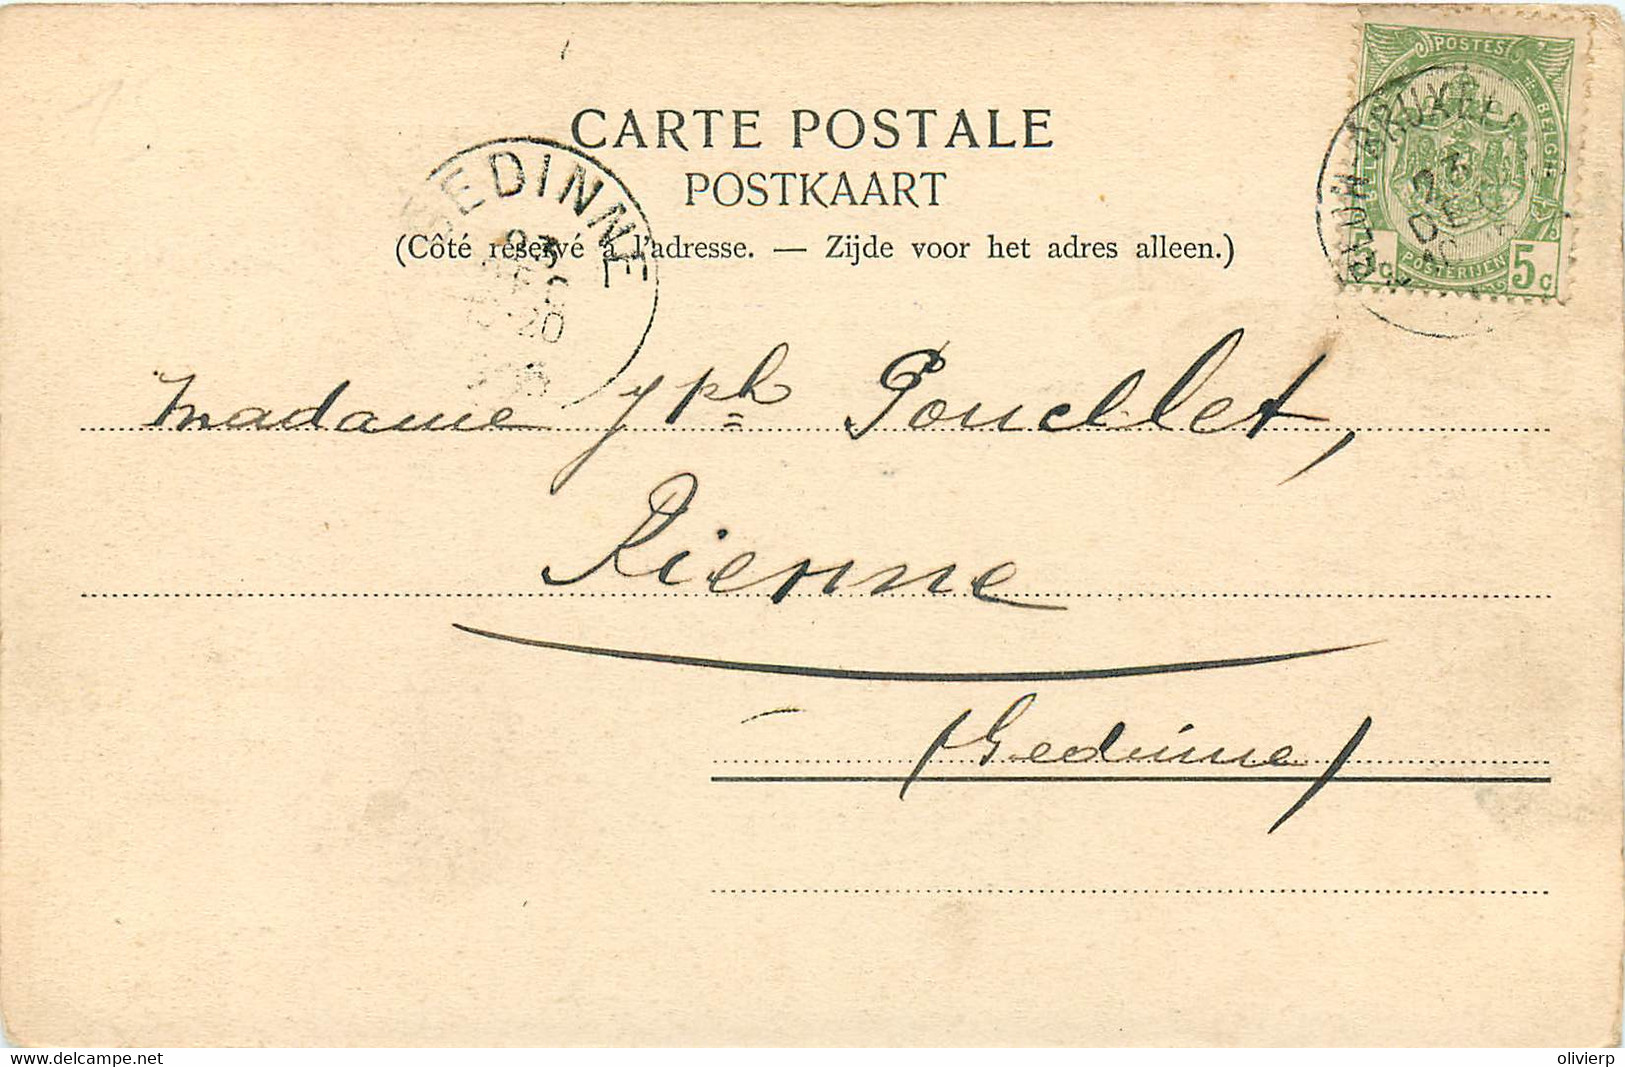 CARTE POSTALE
POSTKAART
(Côté réservé à l'adresse. — Zijde voor het adres alleen.)
POSTES
BELGIË
POSTERIJEN
5c
GEDINNE
23
DEC
20
23
DEC
Madame Jph Poucelet,
Rienne
(Gedinne)
delcampe.net
olivierp